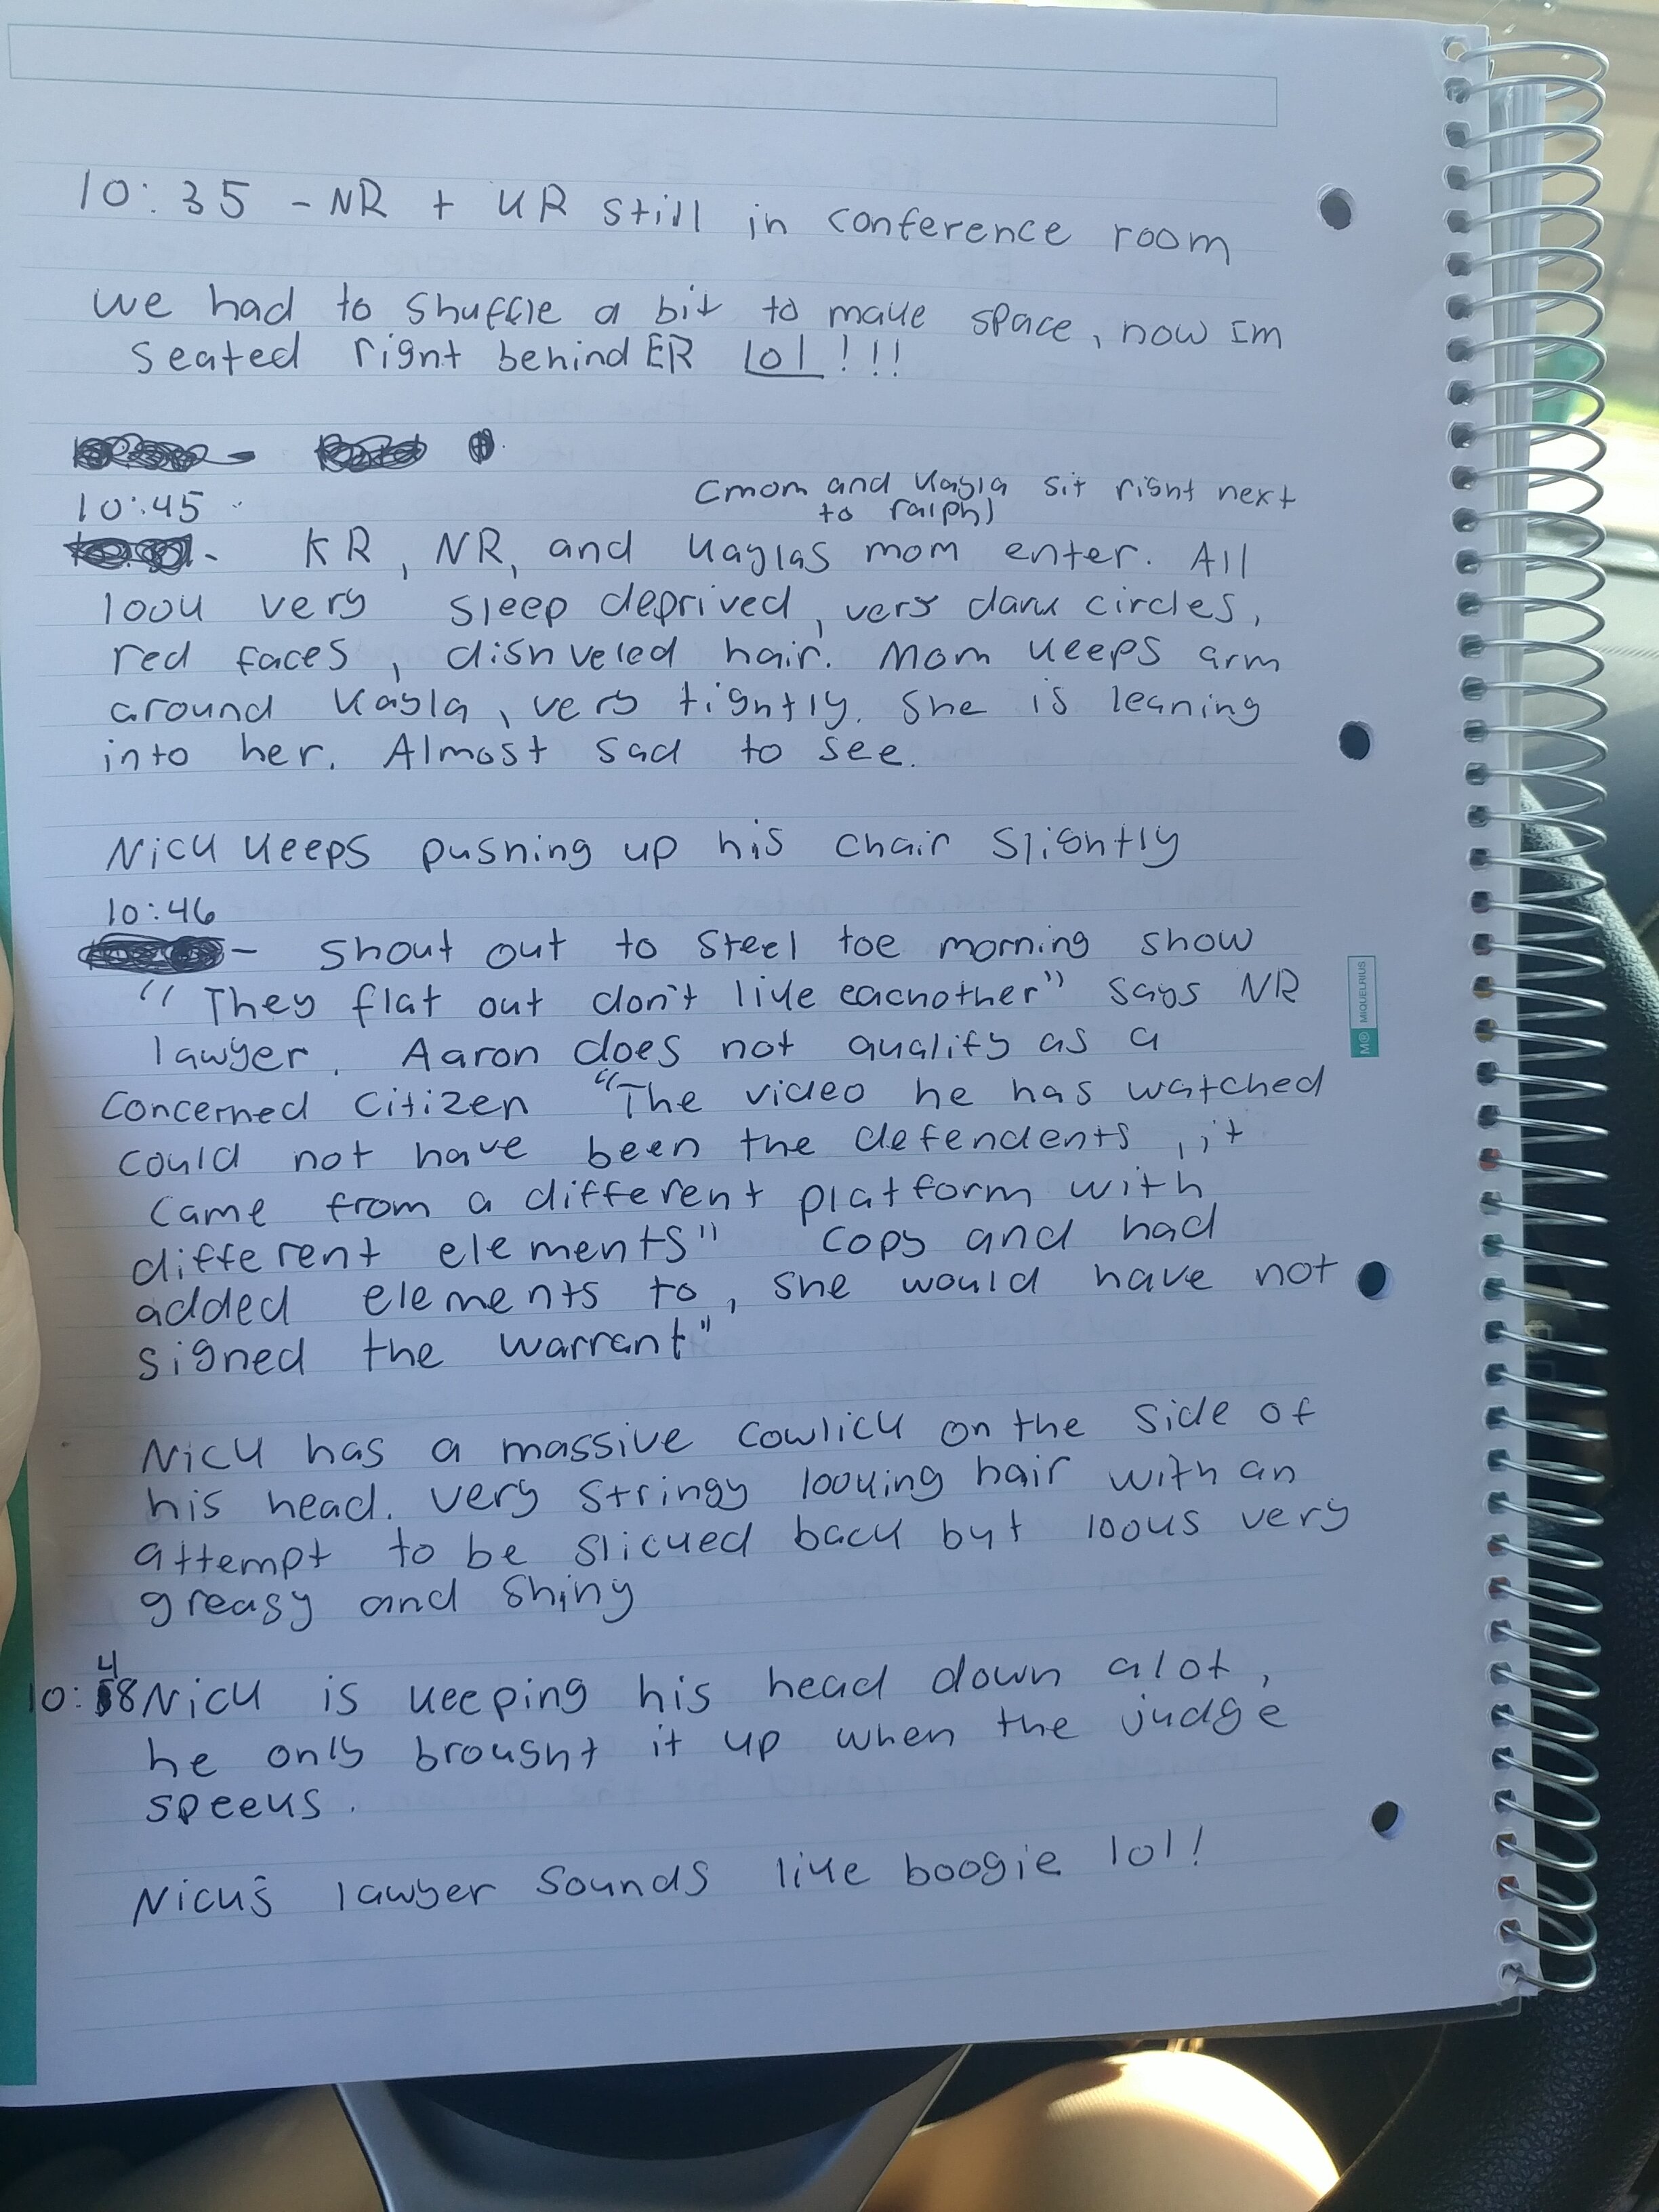 10:35 - NR + KR still in conference room
we had to shuffle a bit to make space, now Im
seated right behind ER lol!!!
10:45
(mom and Kayla sit right next
to ralph)
- KR, NR, and Kaylas mom enter. All
look very sleep deprived, very dark circles,
red faces, dishveled hair. Mom keeps arm
around Kayla, very tightly. She is leaning
into her. Almost sad to see.
Nick keeps pushing up his chair slightly
10:46
- shout out to steel toe morning show
"They flat out don't like eachother" says NR
lawyer. Aaron does not qualify as a
concerned citizen "The video he has watched
could not have been the defendents, it
came from a different platform with
different elements" copy and had
added elements to, she would have not
signed the warrant"
Nick has a massive cowlick on the side of
his head. very stringy looking hair with an
attempt to be slicked back but looks very
greasy and shiny
10:48 Nick is keeping his head down alot,
he only brought it up when the judge
speeks.
Nick's lawyer sounds like boogie lol!
MIQUELRIUS